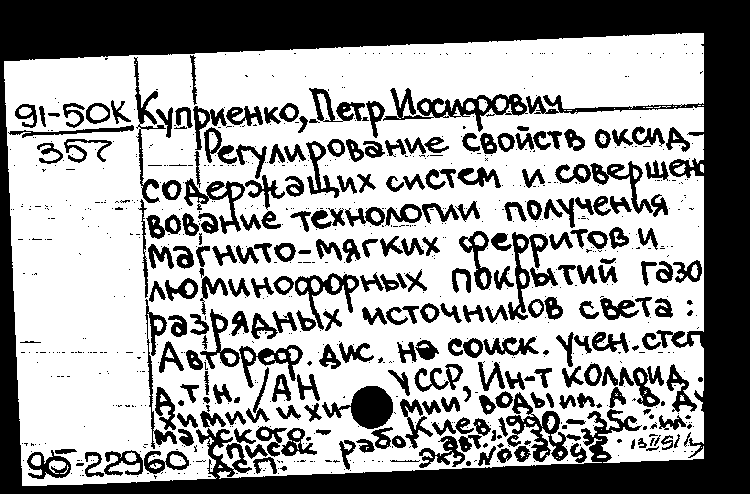 91-50К Куприенко, Петр Иосифович
357 Регулирование свойств оксид-
содержащих систем и совершенс
вование технологии получения
магнито-мягких ферритов и
люминофорных покрытий газо
разрядных источников света :
Автореф. дис. на соиск. учен. степ
д.т.н. /АН УССР, Ин-т коллоид.
химии и хи- мии воды им. А. В. Ду
манского. - Киев, 1990. - 35с.: ил.
Список работ авт.: с. 30-35.
90-22960 ДСП. Экз. N 000098